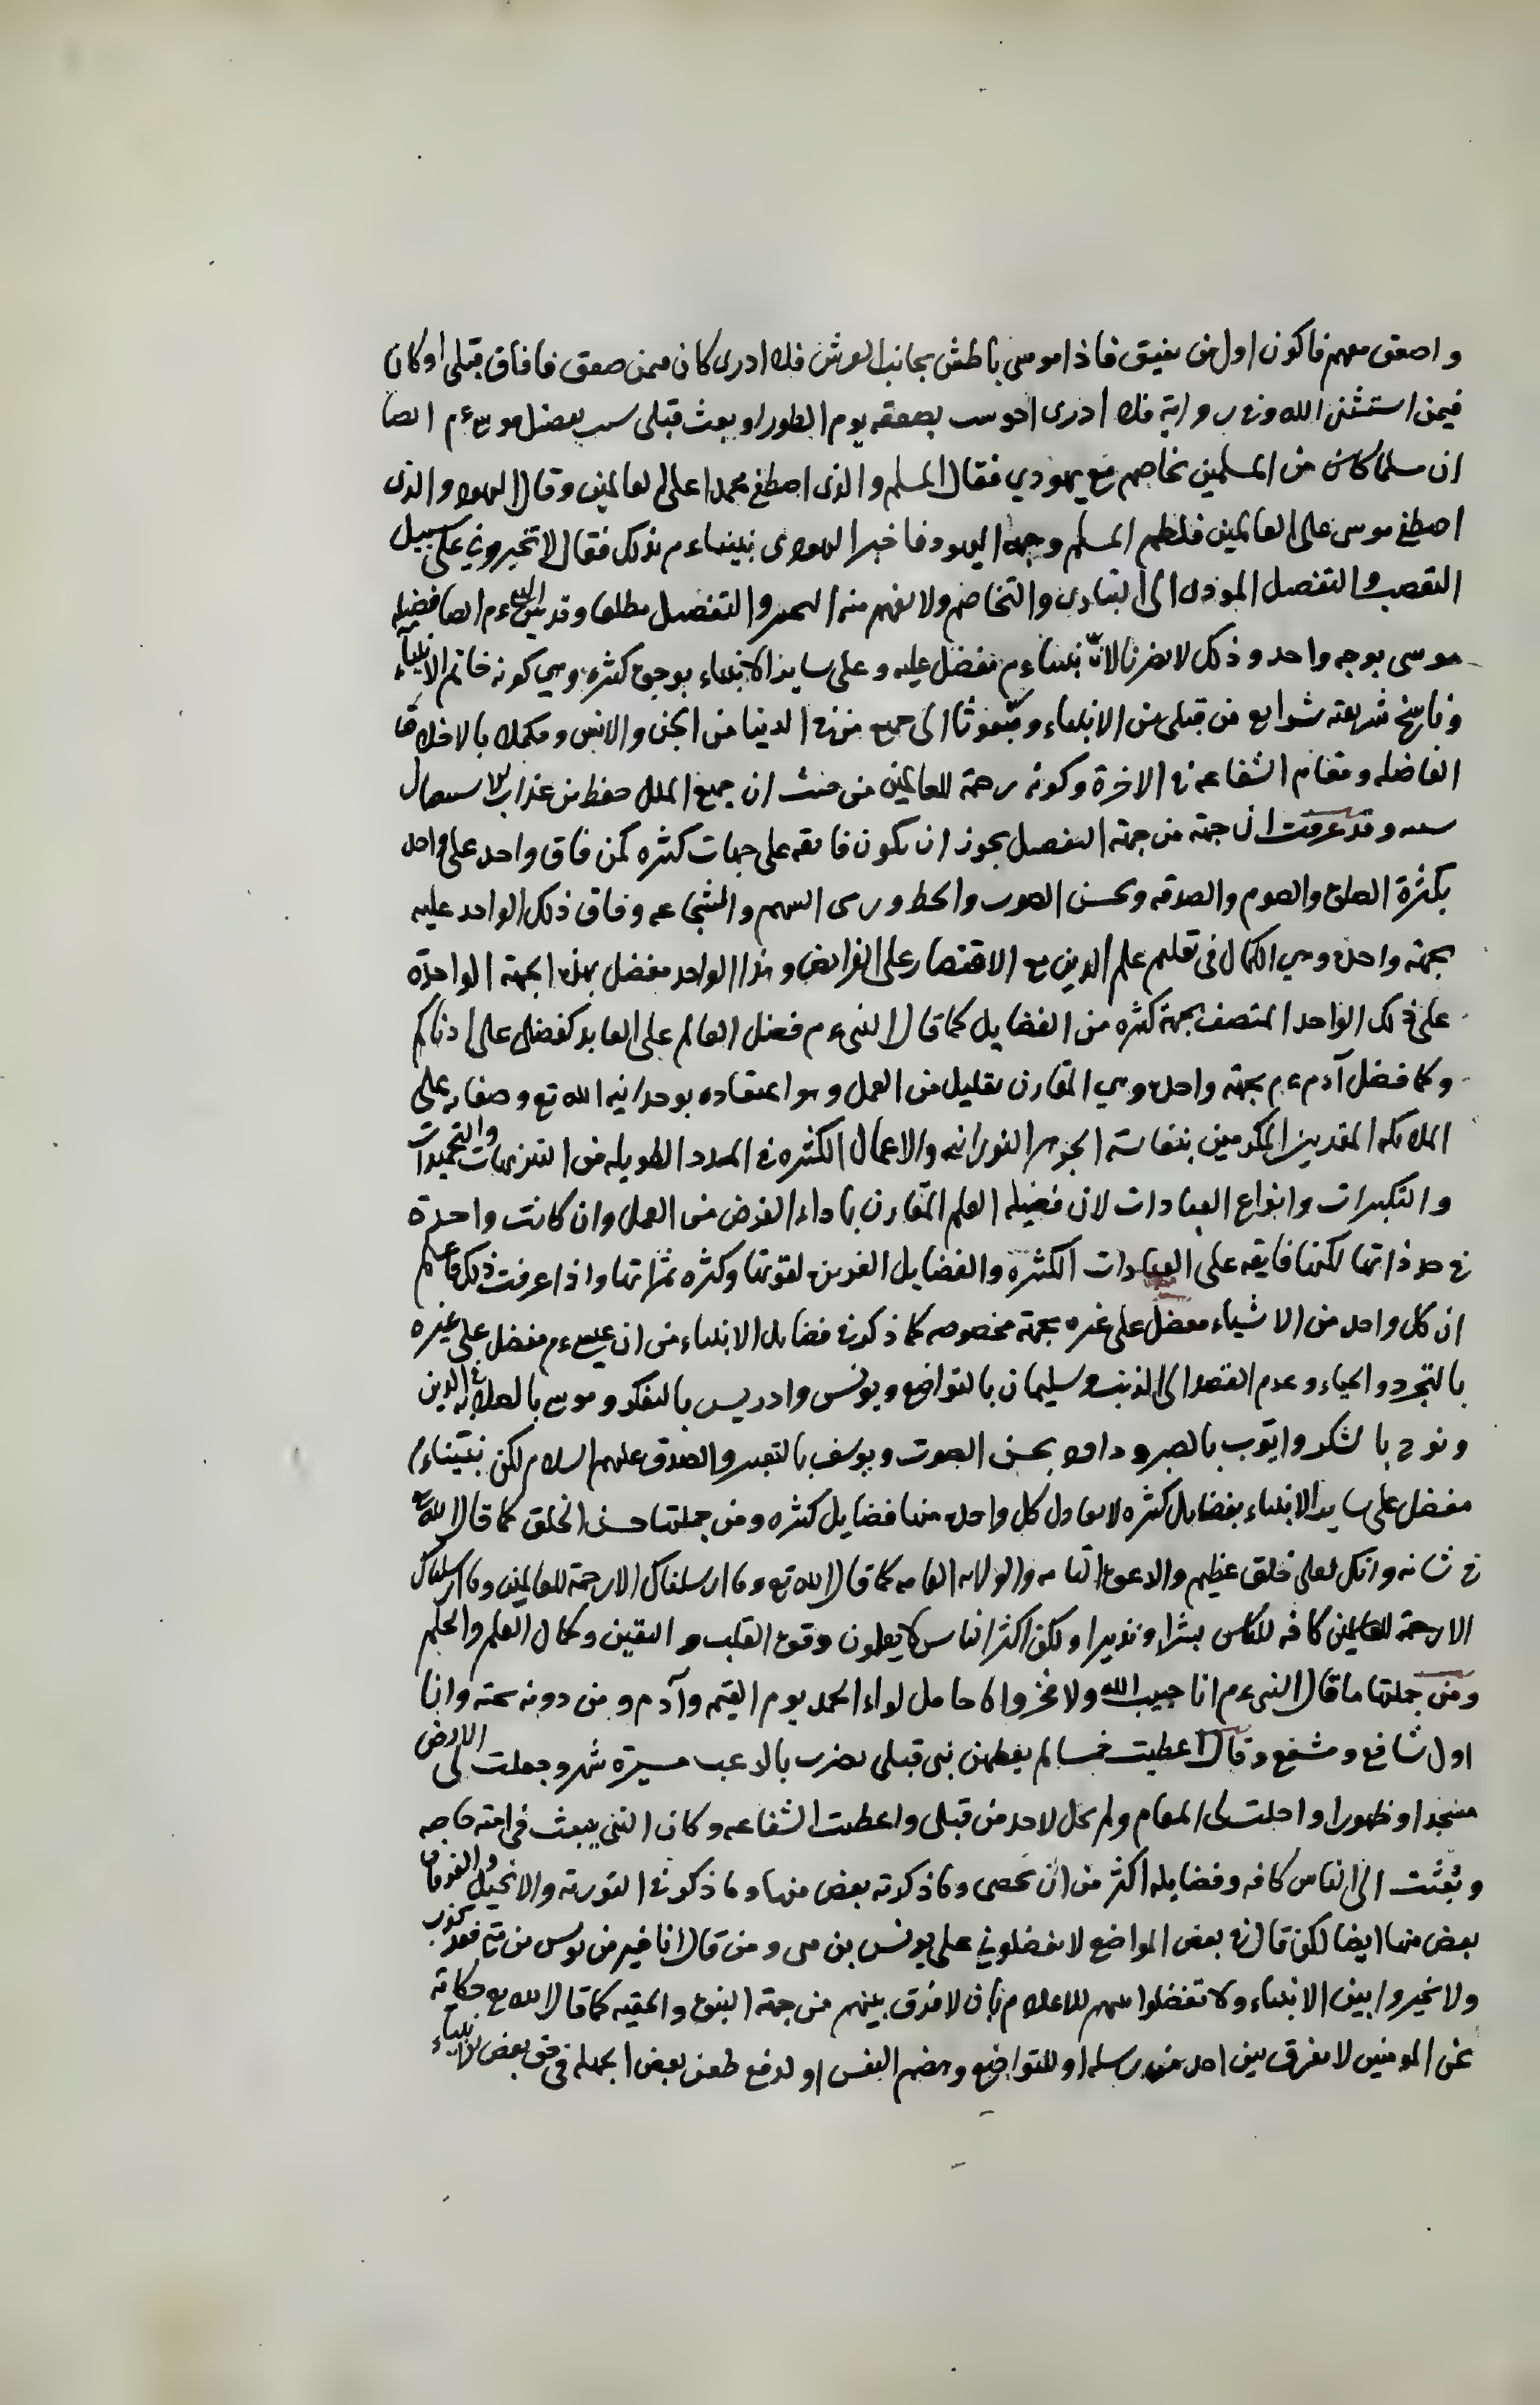 واصعق معهم فاكون اول من يفيق فاذا موسى باطش بجانب العرش فلا ادرى كان فيمن صعق فافاق قبلى او كان
فيمن استثنى الله وفى رواية فلا ادرى احوسب بصعقه يوم الطور او بعث قبلى سبب بفضل موسى ءم ايضا
ان مسلما كان من المسلمين تخاصم مع يهودي فقال المسلم والذى اصطفى محمدا على العالمين وقال اليهود والذى
اصطفى موسى على العالمين فلطم المسلم وجه اليهود فاخبر اليهودى نبينا ءم بذلك فقال لا تخيرونى على سبيل
التعصب والتفضل المودى الى التعادى والتخاصم ولا يفهم منه التخير والتفضيل مطلقا وقد بين النبى ءم ايضا فضيله
موسى بوجه واحد وذلك لا يضرنا لانّ نبينا ءم مفضل عليه وعلى ساير الانبياء بوجوه كثره وهي كونه خاتم الانبياء
وناسخ شريعته شرايع من قبلى من الانبياء ومبعوثا الى جميع من فى الدنيا من الجن والانس ومكملا بالاخلاق
الفاضله ومقام الشفاعه فى الاخرة وكونه رحمة للعالمين من حيث ان جميع الملل حفظ من عذاب الاستيصال
وقد عرفت ان جهة من جهة التفضيل يجوز ان يكون فايقه على جهات كثره كمن فاق واحد على واحد
بكثرة الصلوة والصوم والصدقه وبحسن الصوت والخط ورمى السهم والشجاعه وفاق ذلك الواحد عليه
بجهة واحدة وهي الكمال فى تعليم علم الدين مع الاقتصار على الفرايض وهذا الواحد مفضل بهذه الجهة الواحدة
على ذلك الواحد المتصف بجهة كثره من الفضايل كما قال النبى ءم فضل العالم على العابد كفضلى على ادناكم
وكما فضل آدم ءم بجهة واحدة وهي المقارن بقليل من العمل وهو اعتقاده بوحدانية الله تع وصفاته على
الملائكه المقدسين المكرمين بنفاسة الجوهر النورانيه والاعمال الكثره فى المدد الطويله من التنزيهات والتحميدات
والتكبيرات وانواع العبادات لان فضيله العلم المقارن باداء الفرض من العمل وان كانت واحدة
فى حد ذاتها لكنها فايقه على العبادات الكثره والفضايل لقوتها وكثره ثمراتها واذا عرفت ذلك فاعلم
ان كل واحد من الاشياء مفضل على غيره بجهة مخصوصه كما ذكر فى فضايل الانبياء من ان عيسى ءم مفضل على غيره
بالتجرد والحياء وعدم القصد الى الذنب وسليمان بالتواضع ويونس وادريس بالتفكر وموسى بالصلابه فى الدين
ونوح بالشكر وايوب بالصبر وداود بحسن الصوت ويوسف بالتعبير والصدق عليهم السلام لكن نبينا ءم
مفضل على ساير الانبياء بفضايل كثره لا يعادل كل واحدة منها فضايل كثره ومن جملتها حسن الخلق كما قال الله تع
فى شانه وانك لعلى خلق عظيم والدعوة التامه والولايه العامه كما قال الله تع وما ارسلناك الا رحمة للعالمين وما ارسلناك
الا رحمة للعالمين كافه للناس بشيرا ونذيرا ولكن اكثر الناس لا يعلمون وقوة القلب و اليقين وكمال العلم والحلم
ومن جملتها ما قال النبى ءم انا حبيب الله ولا فخر وانا حامل لواء الحمد يوم القيمه وآدم ومن دونه تحته وانا
اول شافع ومشفع وقال اعطيت خمسا لم يعطهن نبى قبلى نصرت بالرعب مسيرة شهر وجعلت لى الارض
مسجدا وطهورا واحلت لى المغانم ولم تحل لاحد من قبلى واعطيت الشفاعه وكان النبى يبعث فى امته خاصه
وبعثت الى الناس كافه وفضايله اكثر من ان تحصى وما ذكرته بعض منها وما ذكر فى التورية والانجيل والفرقان
بعض منها ايضا لكن قال فى بعض المواضع لا تفضلونى على يونس بن متى ومن قال انا خير من يونس بن متى فقد كذب
ولا تخيروا بين الانبياء ولا تفضلوا بينهم للاعلام بان لا فرق بينهم من جهة النبوة والحقيه كما قال الله تع حكاية
عن المومنين لا نفرق بين احد من رسله او للتواضع وهضم النفس او لدفع طعن بعض الجهله فى حق بعض الانبياء